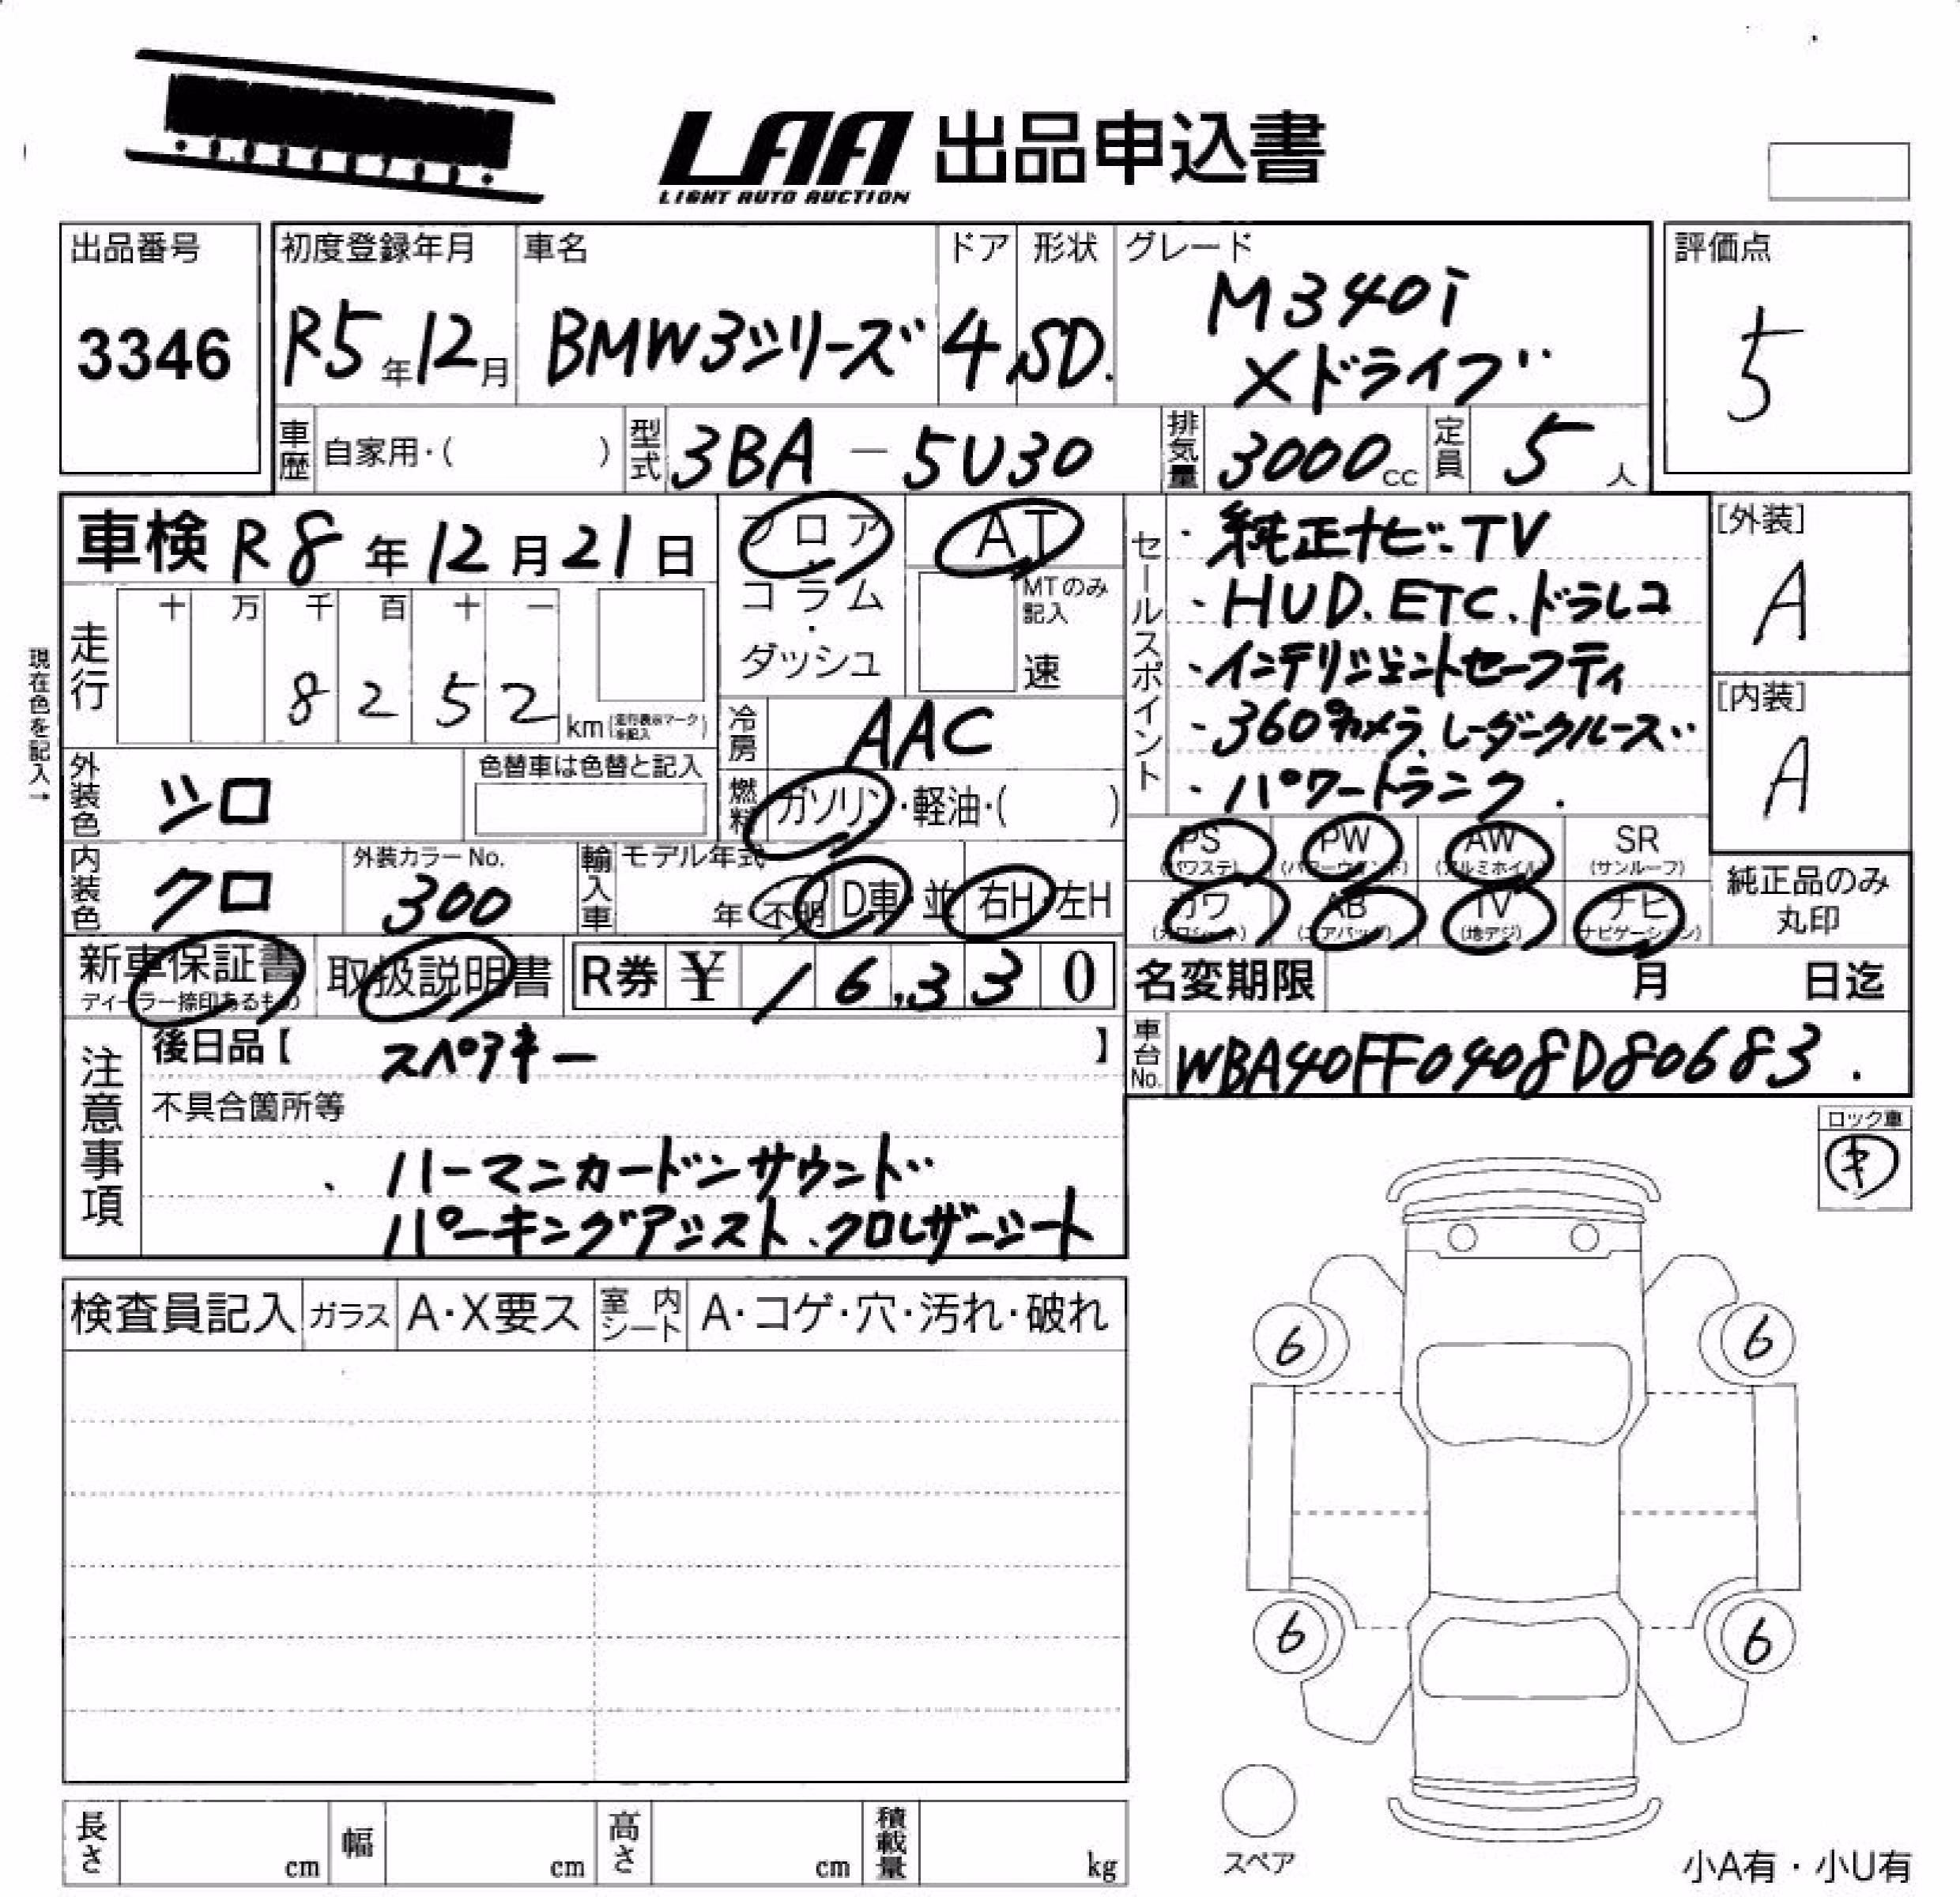 LAA 出品申込書
LIGHT AUTO AUCTION
出品番号
3346
初度登録年月
R5年12月
車名
BMW3シリーズ
ドア
4
形状
SD.
グレード
M340i
Xドライブ
評価点
5
車歴 自家用・( )
型式 3BA-5U30
排気量 3000cc
定員 5人
車検 R8年12月21日
フロア・コラム・ダッシュ
AT
MTのみ記入
速
セールスポイント
・純正ナビ・TV
・HUD、ETC、ドラレコ
・インテリジェントセーフティ
・360°カメラ、レーダークルーズ
・パワートランク.
[外装]
A
[内装]
A
現在色を記入→
走行
十 万 千 百 十 一
8 2 5 2
km(走行表示マークを記入)
冷房 AAC
外装色 シロ
色替車は色替と記入
燃料 ガソリン・軽油・( )
内装色 クロ
外装カラーNo.
300
輸入車
モデル年式
年 不明
D車・並
右H・左H
PS
(パワステ)
PW
(パワーウインド)
AW
(アルミホイル)
SR
(サンルーフ)
カワ
(カワシート)
AB
(エアバッグ)
TV
(地デジ)
ナビ
(ナビゲーション)
純正品のみ
丸印
新車保証書
ディーラー捺印あるもの
取扱説明書
R券 ¥ 16,330
名変期限 月 日迄
注意事項
後日品【 スペアキー 】
車台No. WBA40FF0408D80683.
不具合箇所等
、ハーマンカードンサウンド
パーキングアシスト、クロレザーシート
ロック車
キ
検査員記入 ガラス A・X要ス 室内シート A・コゲ・穴・汚れ・破れ
6 6
6 6
スペア
長さ cm 幅 cm 高さ cm 積載量 kg
小A有・小U有